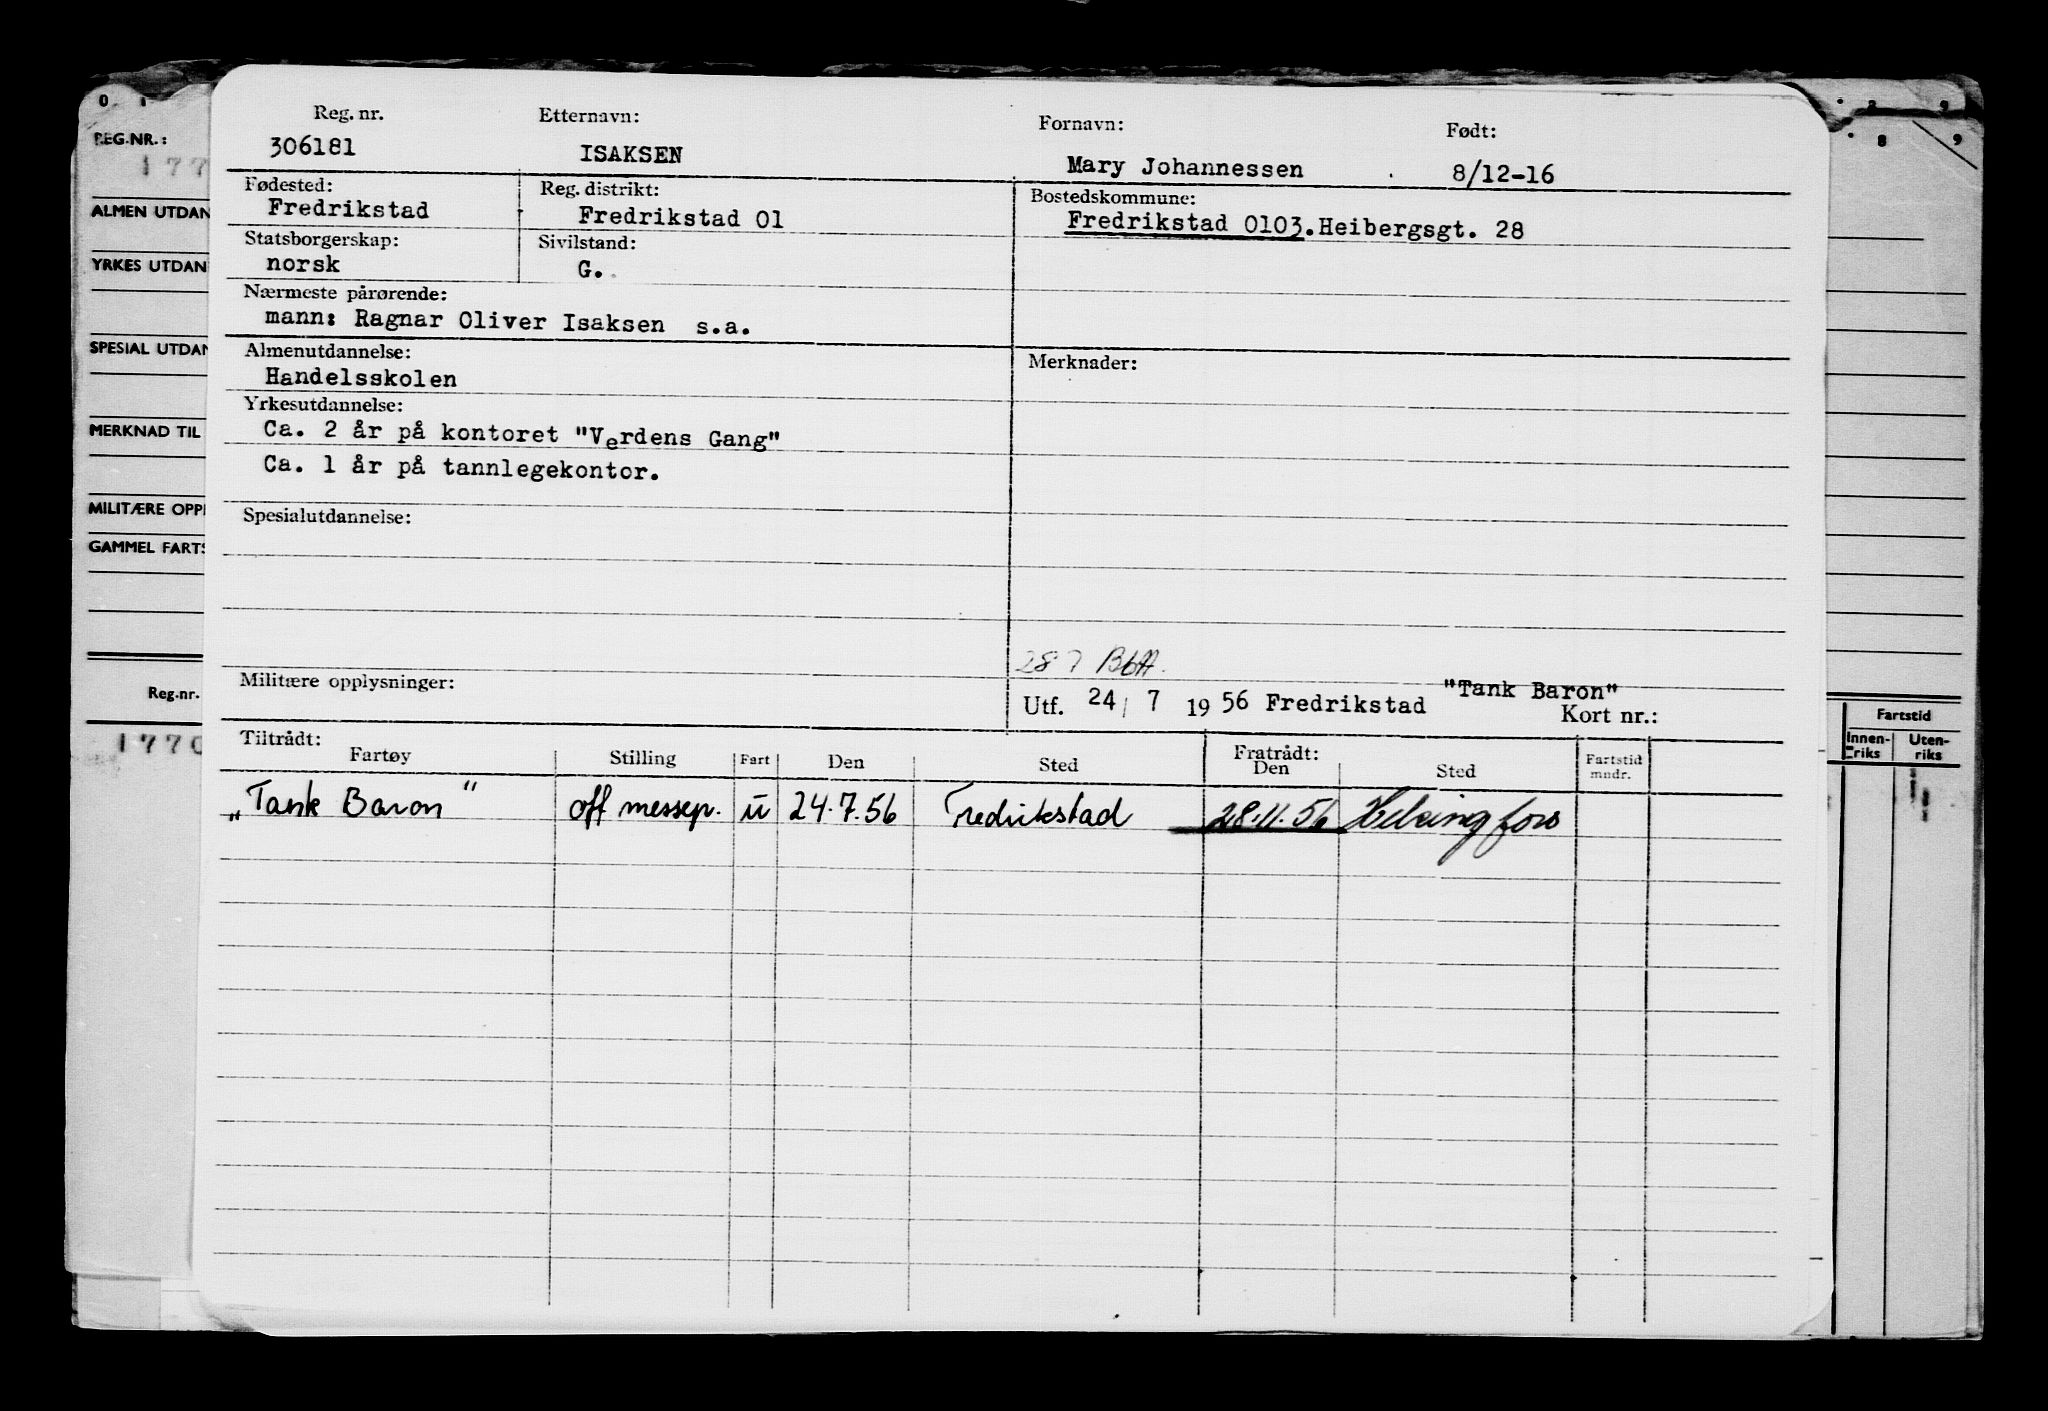 Reg. nr.
306181
Etternavn:
ISAKSEN
Fornavn:
Mary Johannessen
Født:
8/12-16
Fødested:
Fredrikstad
Reg. distrikt:
Fredrikstad 01
Bostedskommune:
Fredrikstad 0103. Heibergsgt. 28
Statsborgerskap:
norsk
Sivilstand:
G.
Nærmeste pårørende:
mann: Ragnar Oliver Isaksen s.a.
Almenutdannelse:
Handelsskolen
Merknader:
Yrkesutdannelse:
Ca. 2 år på kontoret "Verdens Gang"
Ca. 1 år på tannlegekontor.
Spesialutdannelse:
Militære opplysninger:
28 7
Utf. 24/ 7 19 56 Fredrikstad "Tank Baron"
Kort nr.:
Tiltrådt:
Fartøy Stilling Fart Den Sted
Fratrådt:
Den Sted
Fartstid
mndr.
„Tank Baron" off messep. u 24.7.56 Fredrikstad 28.11.56 Helsingfors
0 1
REG.NR.:
177
ALMEN UTDAN
YRKES UTDAN
SPESIAL UTDAN
MERKNAD TIL
MILITÆRE OPP
GAMMEL FARTS
Reg.nr.
1770
8 9
Fartstid
Innen-
riks
Uten-
riks